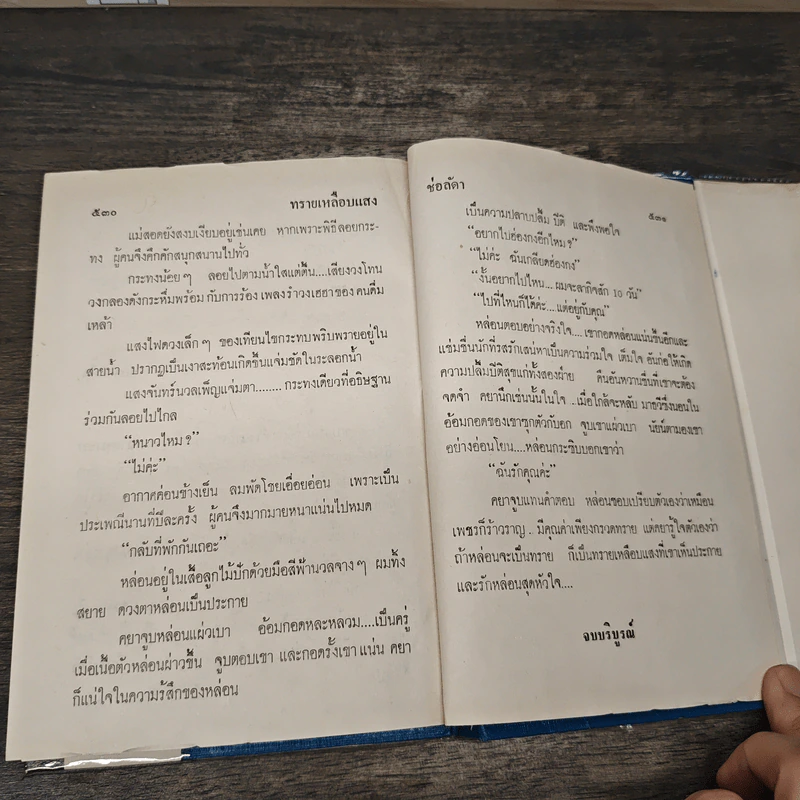 ๕๓๐ ทรายเหลือบแสง
แม่สอดยังสงบเงียบอยู่เช่นเคย หากเพราะพิธีลอยกระ-
ทง ผู้คนจึงคึกคักสนุกสนานไปทั่ว
กระทงน้อยๆ ลอยไปตามน้ำใสแต่ตื้น....เสียงวงโทน
วงกลองดังกระหึ่มพร้อม กับการร้อง เพลงรำวงเฮฮาของ คนดื่ม
เหล้า
แสงไฟดวงเล็กๆ ของเทียนไขกระทบพริบพรายอยู่ใน
สายน้ำ ปรากฏเป็นเงาสะท้อนเกิดขึ้นแจ่มชัดในระลอกน้ำ
แสงจันทร์นวลเพ็ญแจ่มตา........กระทงเดียวที่อธิษฐาน
ร่วมกันลอยไปไกล
“หนาวไหม ?”
“ไม่ค่ะ”
อากาศค่อนข้างเย็น ลมพัดโชยเอื่อยอ่อน เพราะเป็น
ประเพณีนานที่ปีละครั้ง ผู้คนจึงมากมายหนาแน่นไปหมด
“กลับที่พักกันเถอะ”
หล่อนอยู่ในเสื้อลูกไม้ปักด้วยมือสีฟ้านวลจางๆ ผมทิ้ง
สยาย ดวงตาหล่อนเป็นประกาย
คยาจูบหล่อนแผ่วเบา อ้อมกอดหละหลวม....เป็นครู่
เมื่อเนื้อตัวหล่อนผ่าวขึ้น จูบตอบเขา และกอดรั้งเขา แน่น คยา
ก็แน่ใจในความรู้สึกของหล่อน
ช่อลัดา
๕๓๑
เป็นความปลาบปลื้ม ปีติ และพึงพอใจ
“อยากไปฮ่องกงอีกไหม ?”
“ไม่ค่ะ ฉันเกลียดฮ่องกง”
“งั้นอยากไปไหน...ผมจะลากิจสัก 10 วัน”
“ไปที่ไหนก็ได้ค่ะ....แต่อยู่กับคุณ”
หล่อนตอบอย่างจริงใจ....เขากอดหล่อนแน่นขึ้นอีกและ
แช่มชื่นนักที่รสรักเสน่หาเป็นความร่วมใจ เต็มใจ อันก่อให้เกิด
ความปลื้มปีติสุขแก่ทั้งสองฝ่าย คืนอันหวานชื่นที่เขาจะต้อง
จดจำ คยานึกเช่นนั้นในใจ ..เมื่อใกล้จะหลับ มาธวีซึ่งนอนใน
อ้อมกอดของเขาซุกตัวกับอก จูบเขาแผ่วเบา นัยน์ตามองเขา
อย่างอ่อนโยน....หล่อนกระซิบบอกเขาว่า
“ฉันรักคุณค่ะ”
คยาจูบแทนคำตอบ หล่อนชอบเปรียบตัวเองว่าเหมือน
เพชรก็ร้าวราญ . มีคุณค่าเพียงกรวดทราย แต่คยารู้ใจตัวเองว่า
ถ้าหล่อนจะเป็นทราย ก็เป็นทรายเหลือบแสงที่เขาเห็นประกาย
และรักหล่อนสุดหัวใจ....
จบบริบูรณ์